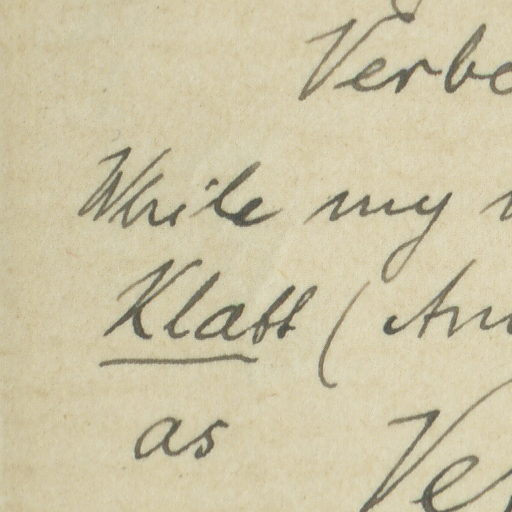 Verbe
While my
Klatt (An
as Ve